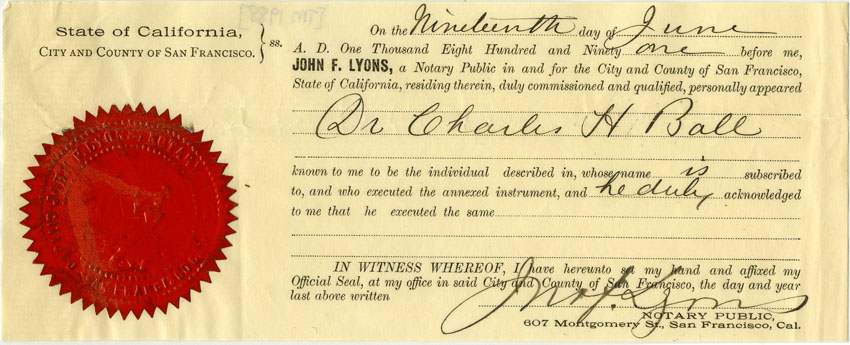 State of California,
CITY AND COUNTY OF SAN FRANCISCO.
} ss.
On the Nineteenth day of June
A. D. One Thousand Eight Hundred and Ninety one before me,
JOHN F. LYONS, a Notary Public in and for the City and County of San Francisco,
State of California, residing therein, duly commissioned and qualified, personally appeared
Dr Charles H Ball
known to me to be the individual described in, whose name is subscribed
to, and who executed the annexed instrument, and he duly acknowledged
to me that he executed the same
IN WITNESS WHEREOF, I have hereunto set my hand and affixed my
Official Seal, at my office in said City and County of San Francisco, the day and year
last above written
Jno. F. Lyons
NOTARY PUBLIC,
607 Montgomery St., San Francisco, Cal.